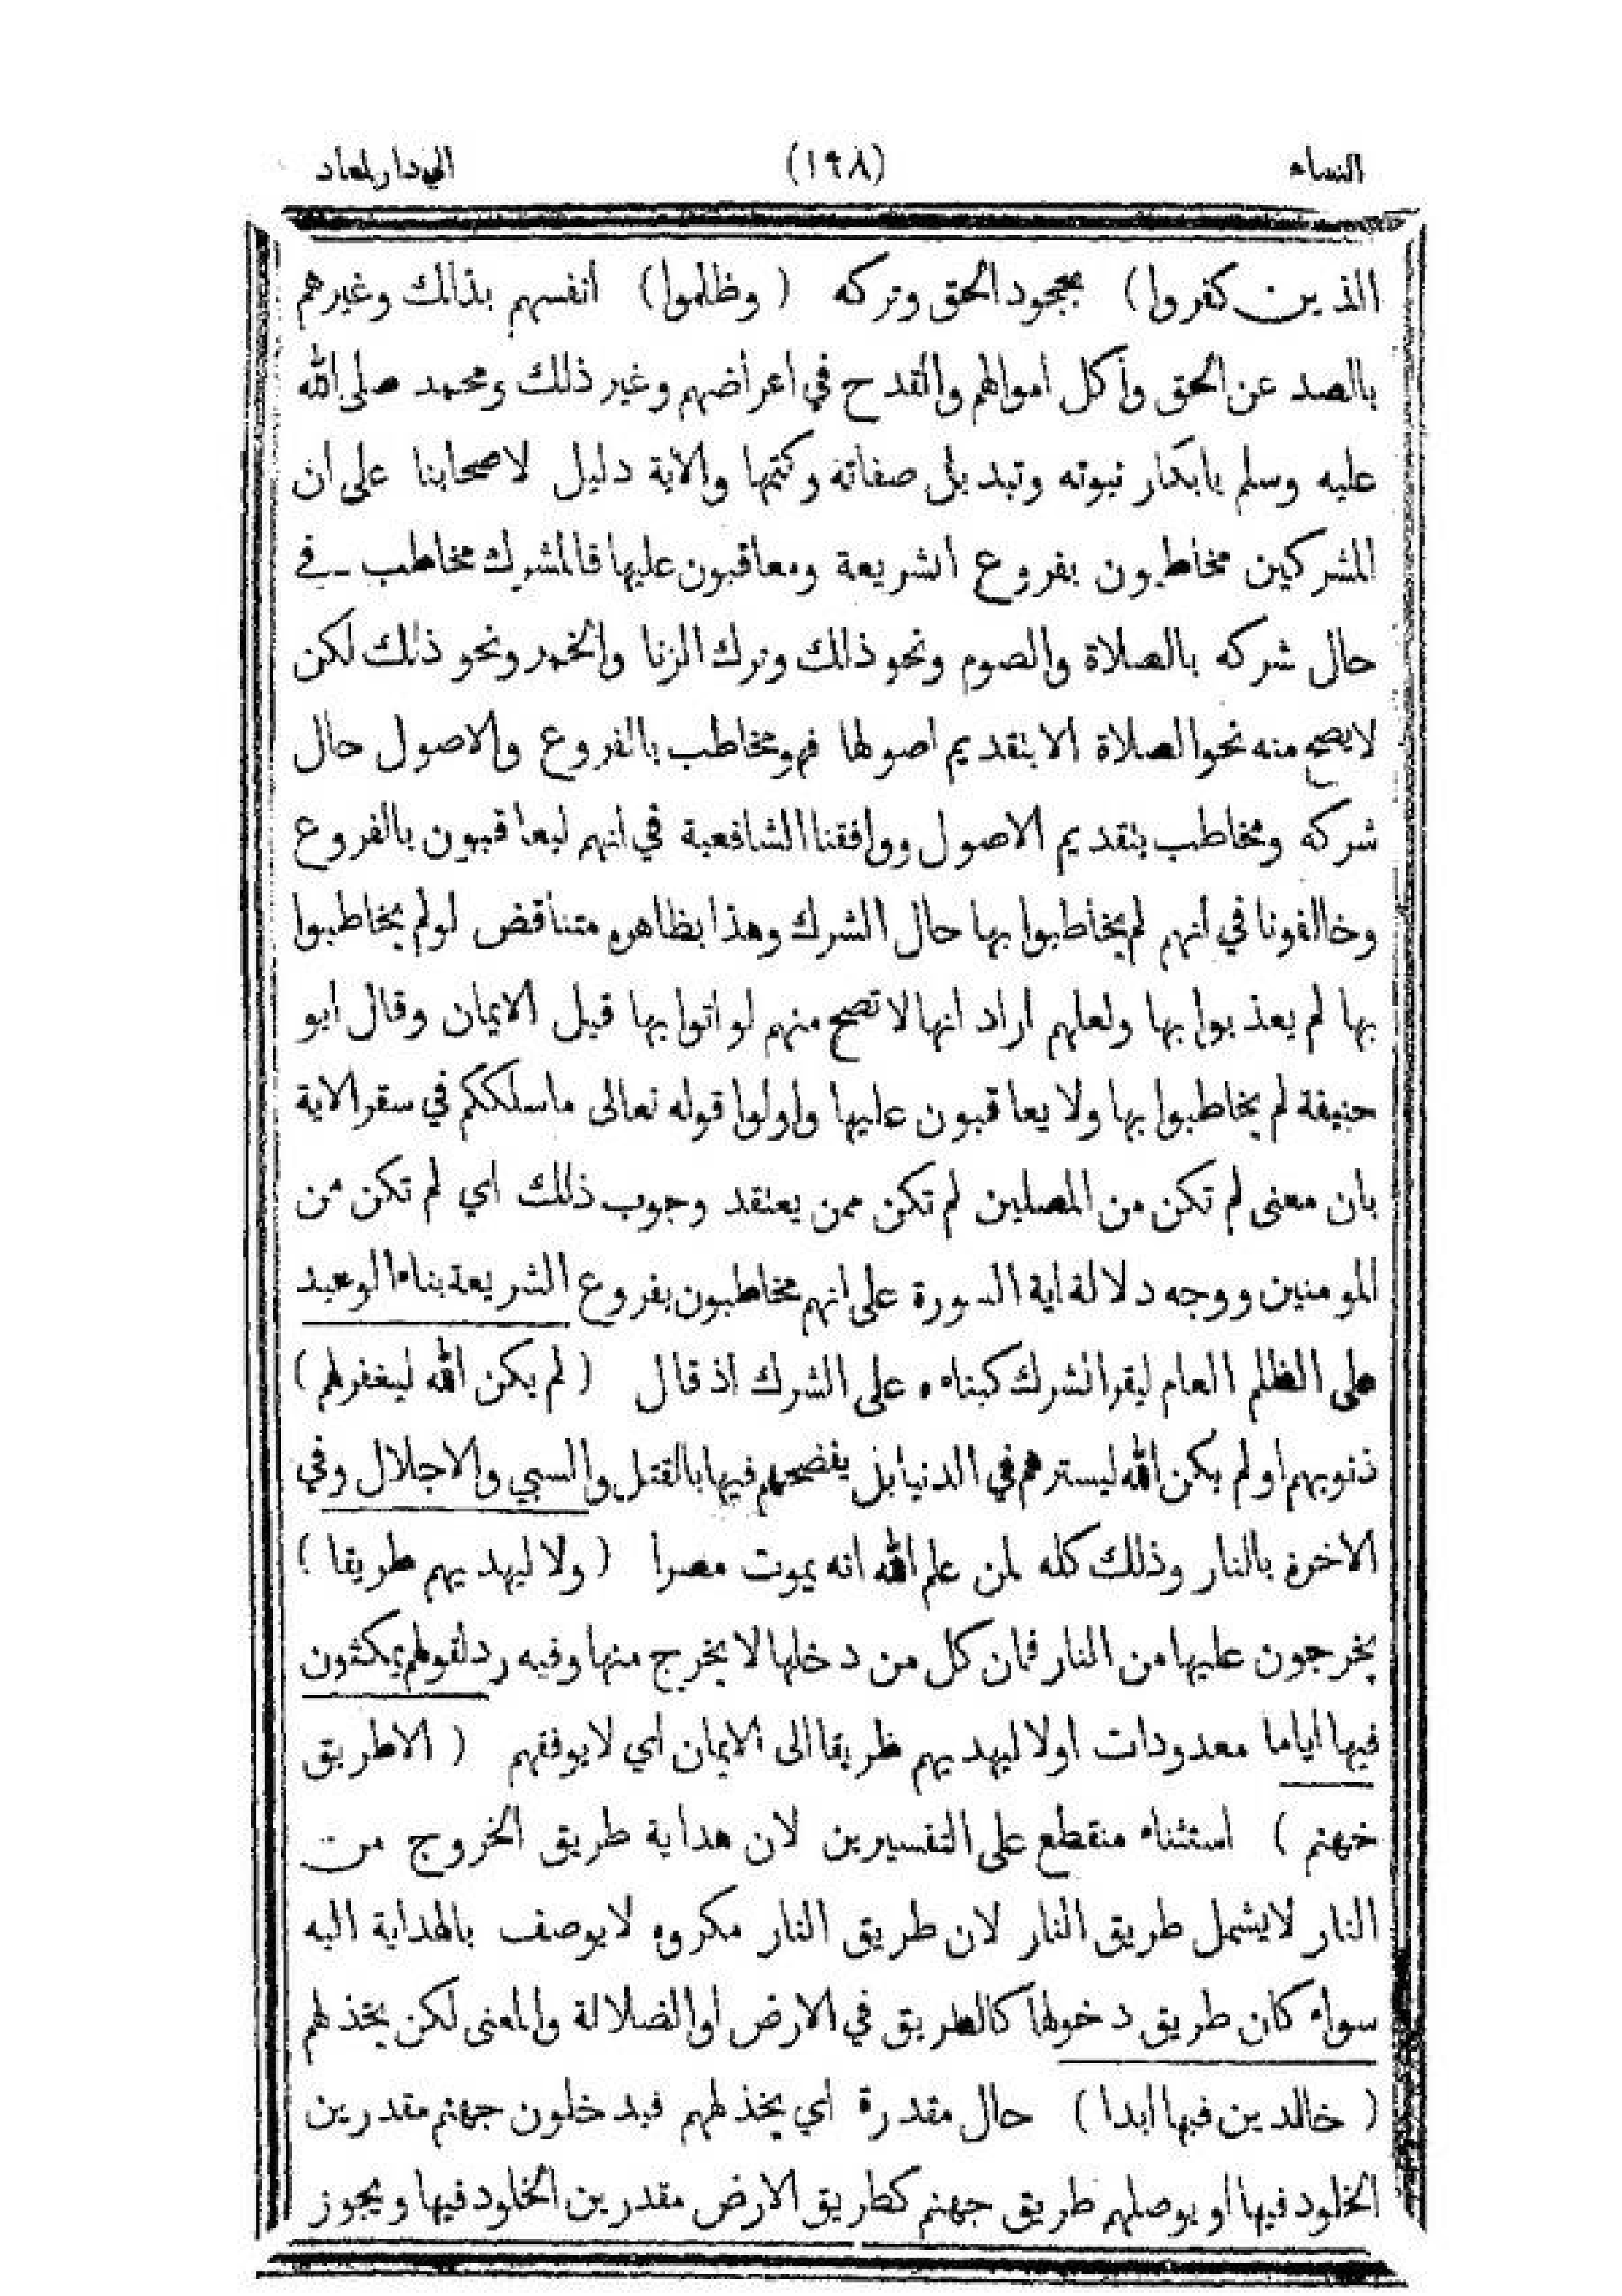 النساء (١٩٨) الي دار المعاد
الذين كفروا) بجحود الحق وتركه (وظلموا) أنفسهم بذالك وغيرهم
بالصد عن الحق وأكل اموالهم والقدح في اعراضهم وغير ذلك ومحمد صلى الله
عليه وسلم بانكار نبوته وتبديل صفاته وكتمها والاية دليل لاصحابنا على ان
المشركين مخاطبون بفروع الشريعة ومعاقبون عليها فالمشرك مخاطب في
حال شركه بالصلاة والصوم ونحو ذالك وترك الزنا والخمر ونحو ذلك لكن
لا يصح منه نحو الصلاة الا بتقديم اصولها فهو مخاطب بالفروع والاصول حال
شركه ومخاطب بتقديم الاصول ووافقنا الشافعية في انهم ليعاقبون بالفروع
وخالفونا في انهم لم يخاطبوا بها حال الشرك وهذا بظاهره متناقض لو لم يخاطبوا
بها لم يعذبوا بها ولعلهم اراد انها لا تصح منهم لو اتوا بها قبل الايمان وقال ابو
حنيفة لم يخاطبوا بها ولا يعاقبون عليها واولوا قوله تعالى ماسلككم في سقر الاية
بان معنى لم تكن من المصلين لم تكن ممن يعتقد وجوب ذلك اي لم تكن من
المومنين ووجه دلالة اية السورة على انهم مخاطبون بفروع الشريعة بناء الوعيد
على الظلم العام ليقر الشرك كبناءه على الشرك اذ قال (لم يكن الله ليغفر لهم)
ذنوبهم او لم يكن الله ليسترهم في الدنيا بل يفضحهم فيها بالقتل والسبي والاجلال وفي
الاخرة بالنار وذلك كله لمن علم الله انه يموت مصرا (ولا ليهديهم طريقا)
يخرجون عليها من النار فان كل من دخلها لا يخرج منها وفيه رد لقولهم يمكثون
فيها اياما معدودات او لا ليهديهم طريقا الى الايمان اي لا يوفقهم (الا طريق
جهنم) استثناء منقطع على التفسيرين لان هداية طريق الخروج من
النار لا يشمل طريق النار لان طريق النار مكروه لا يوصف بالهداية اليه
سواء كان طريق دخولها كالطريق في الارض او الضلالة والمعنى لكن يخذلهم
(خالدين فيها ابدا) حال مقدرة اي يخذلهم فيدخلون جهنم مقدرين
الخلود فيها او يوصلهم طريق جهنم كطريق الارض مقدرين الخلود فيها ويجوز